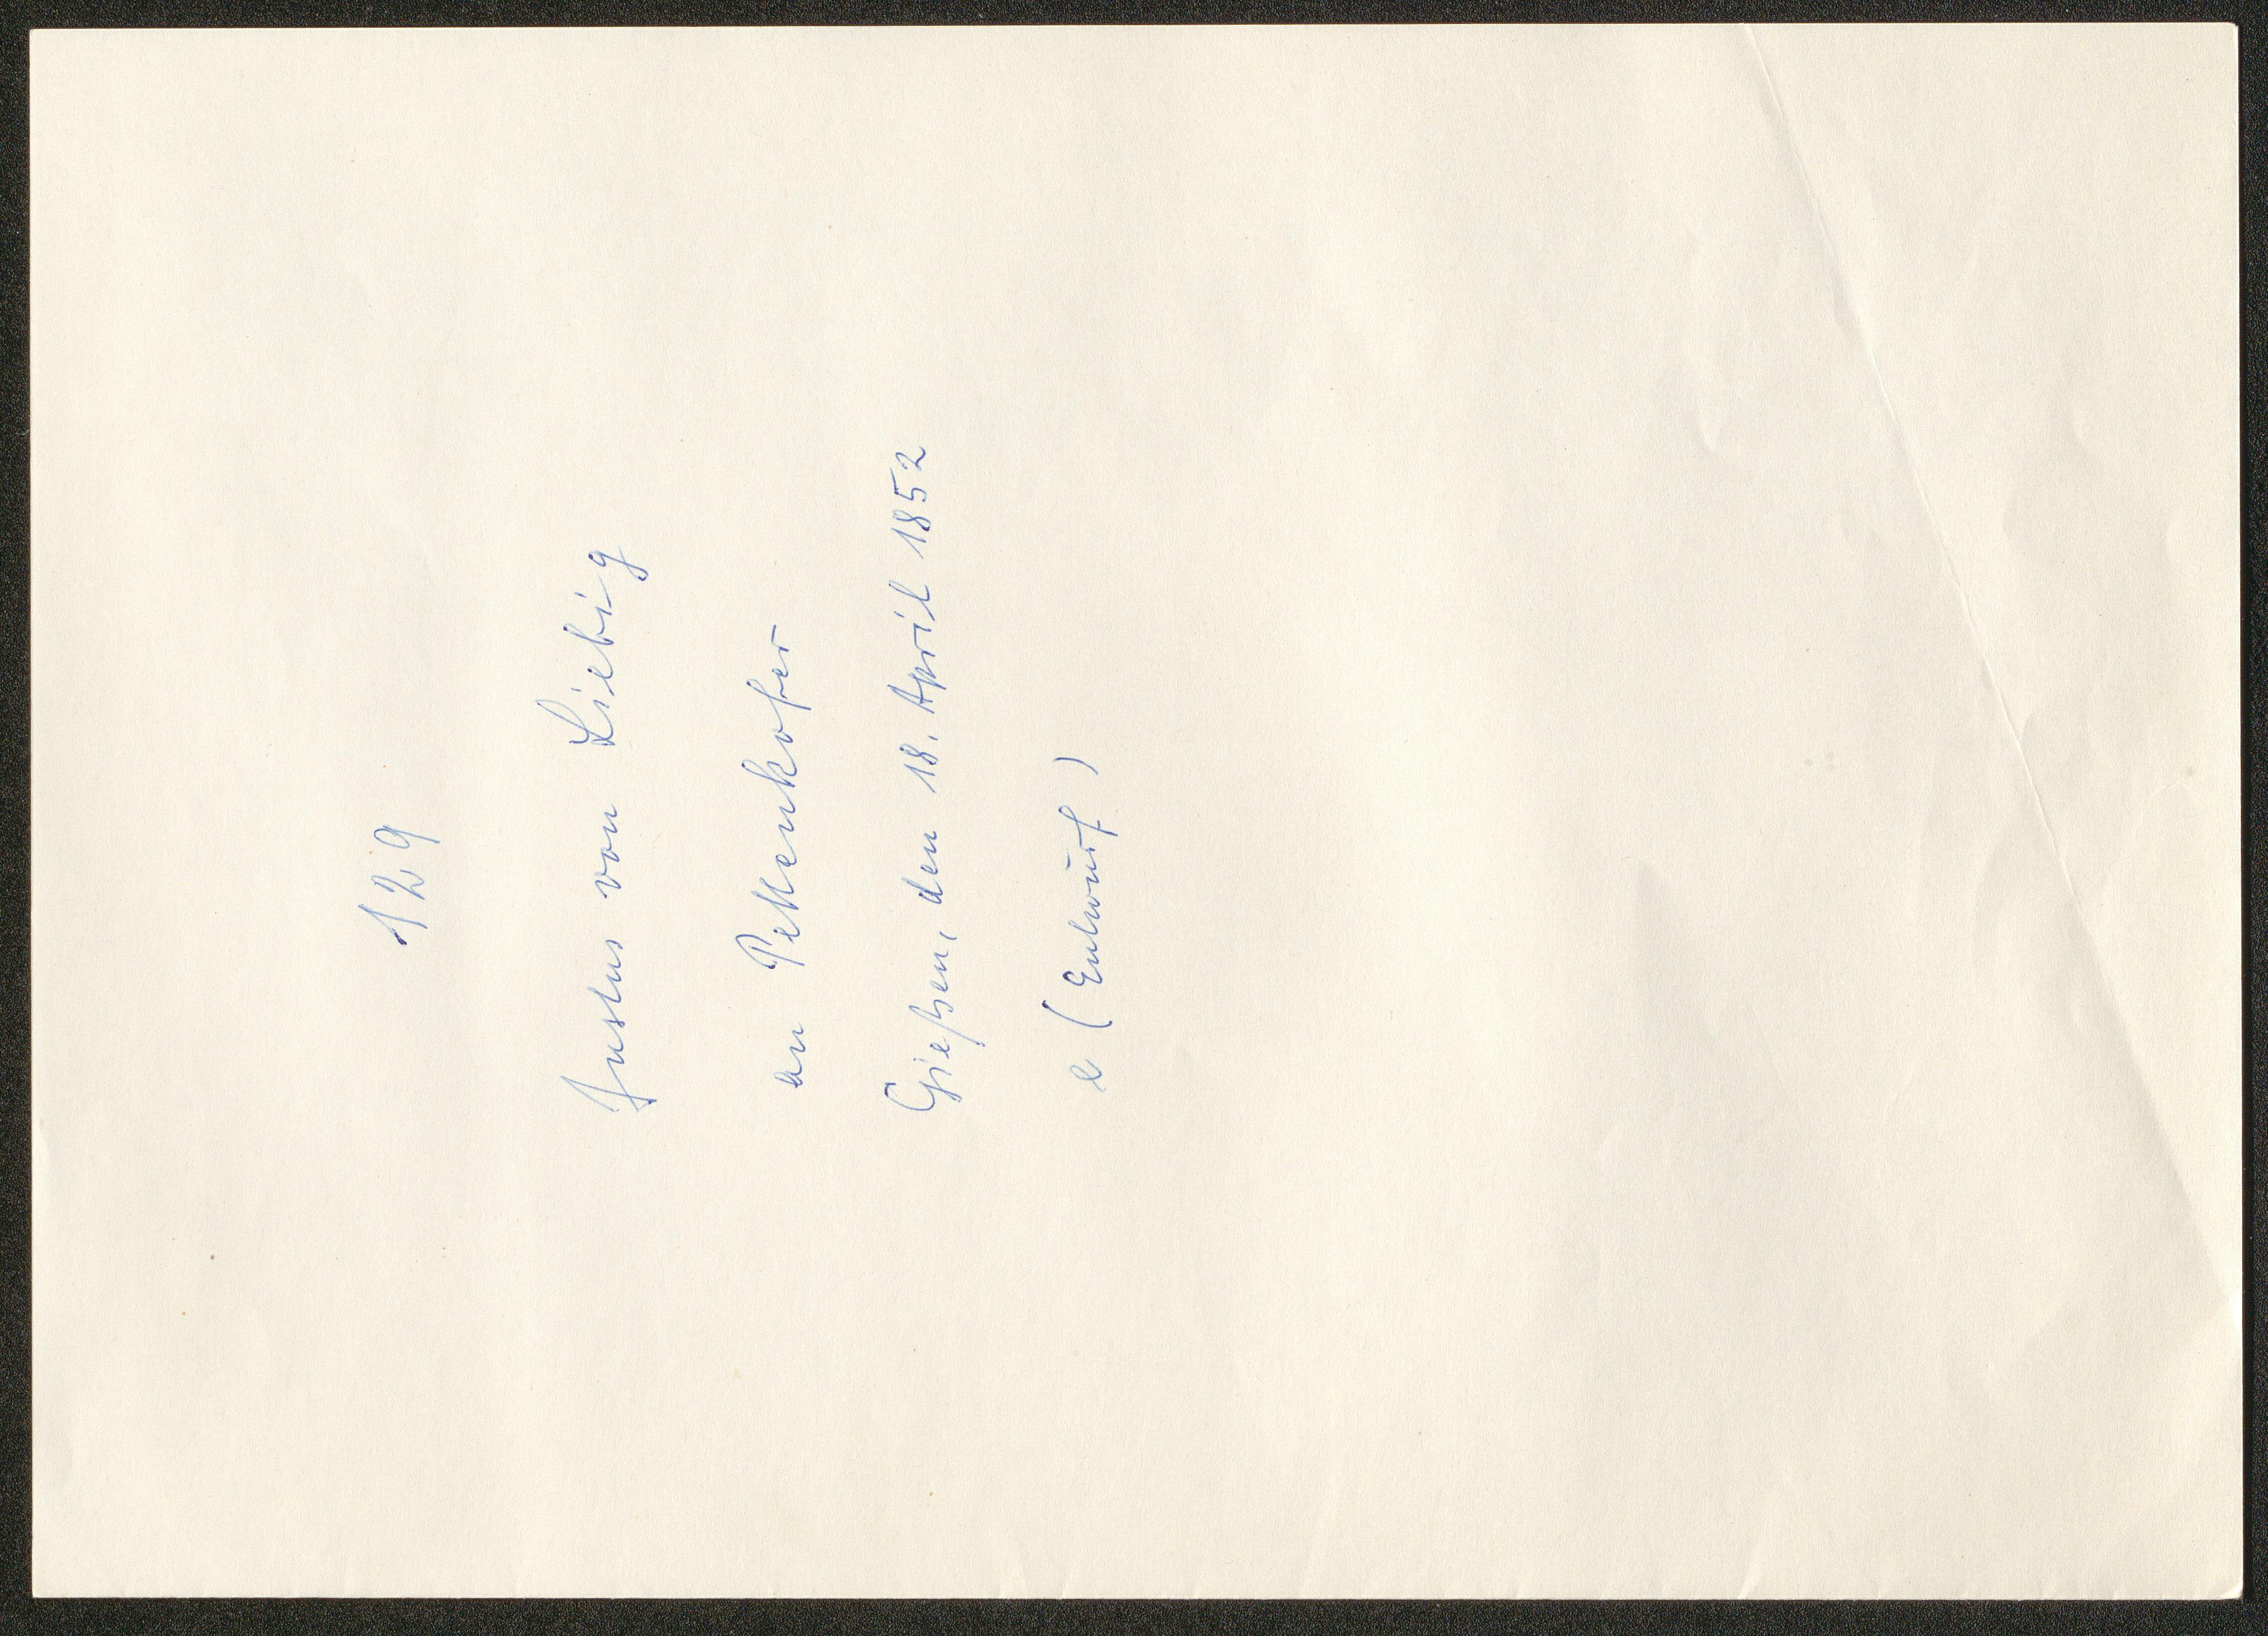 129
Justus von Liebig
an Pettenkofer
Gießen, den 18. April 1852
e (Entwurf)